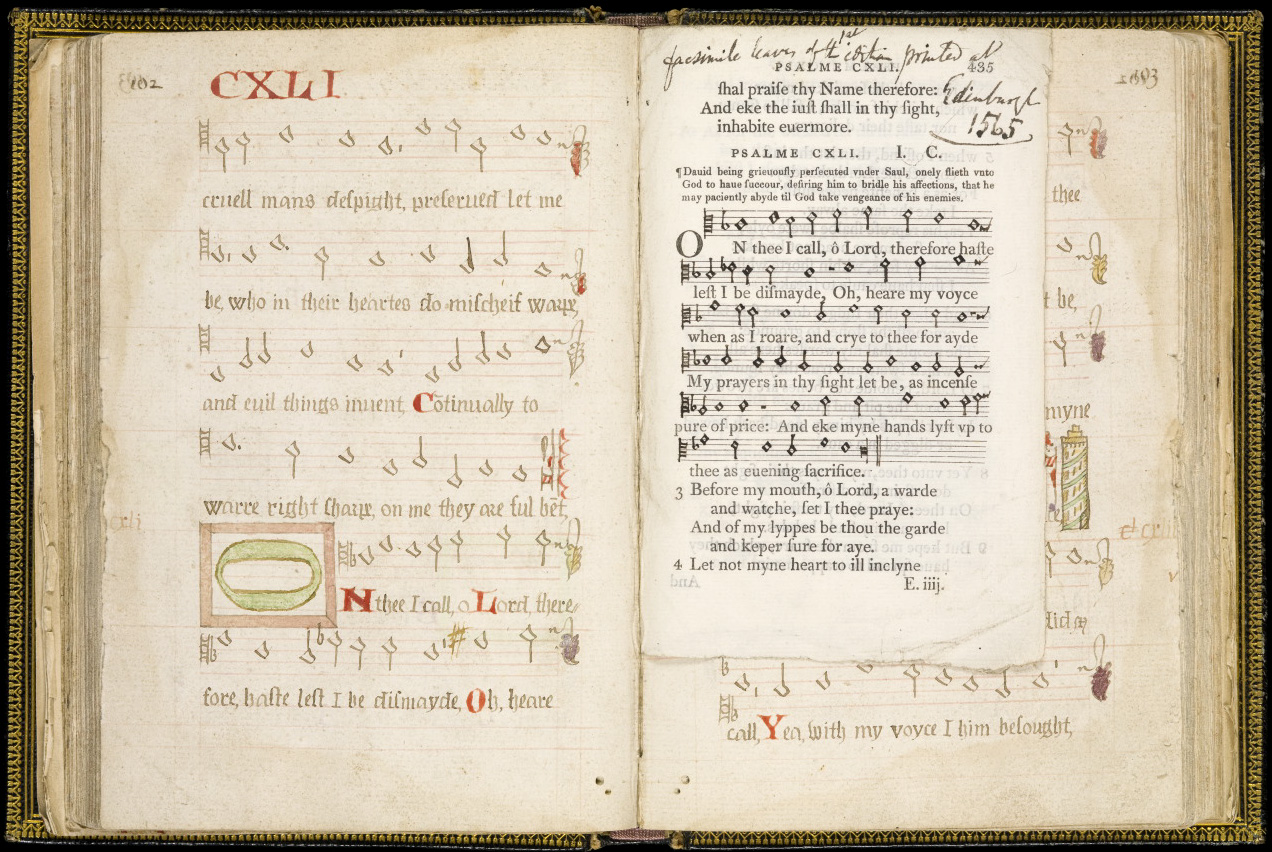 102
CXLI
cruell mans deſpight, preſerued let me
be, who in their heartes do miſcheif
and euil things inuent, Cōtinually to
warre right on me they are ful bēt,
O
N thee I call, o Lord, there
fore, haſte leſt I be diſmayde, Oh, heare
facsimile leaves of the 1st edition printed at
Edinburgh
1565
PSALME CXLI. 435
ſhal praiſe thy Name therefore:
And eke the iuſt ſhall in thy ſight,
inhabite euermore.
PSALME CXLI. I. C.
¶Dauid being grieuouſly perſecuted vnder Saul, onely flieth vnto
God to haue ſuccour, deſiring him to bridle his affections, that he
may paciently abyde til God take vengeance of his enemies.
ON thee I call, ô Lord, therefore haſte
leſt I be diſmayde, Oh, heare my voyce
when as I roare, and crye to thee for ayde
My prayers in thy ſight let be, as incenſe
pure of price: And eke myne hands lyſt vp to
thee as euening ſacrifice.
3 Before my mouth, ô Lord, a warde
and watche, ſet I thee praye:
And of my lyppes be thou the garde
and keper ſure for aye.
4 Let not myne heart to ill inclyne
E. iiij.
thee
be,
myne
call, Yea, with my voyce I him beſought,